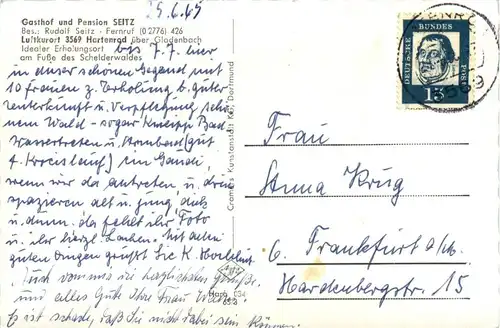 25.6.65
Gasthof und Pension SEITZ
Bes.: Rudolf Seitz - Fernruf (0 2776) 426
Luftkurort 3569 Hartenrod über Gladenbach
Idealer Erholungsort
am Fuße des Schelderwaldes
bis 7.7. hier
in dieser schönen Gegend mit
10 Frauen z. Erholung b. guter
Unterkunft u. Verpflegung schö-
nem Wald - sogar Kneipp Bad
Wassertreten u. Armbad (gut
f. Kreislauf) im
wenn wir da antreten u.
spazieren alt u. jung, dick
u. dünn. da fehlt ihr Foto
u. ihr herzl. Lachen. Mit allen
guten grüßt Sie K.
Auch von mir die herzlichsten Grüße
und alles Gute Ihre Frau
Es ist schade, daß Sie nicht dabei sein können.
Cramers Kunstanstalt KG, Dortmund
DEUTSCHE BUNDESPOST
15
3569
Frau
Anna Krug
6. Frankfurt a/M.
Hardenbergstr. 15